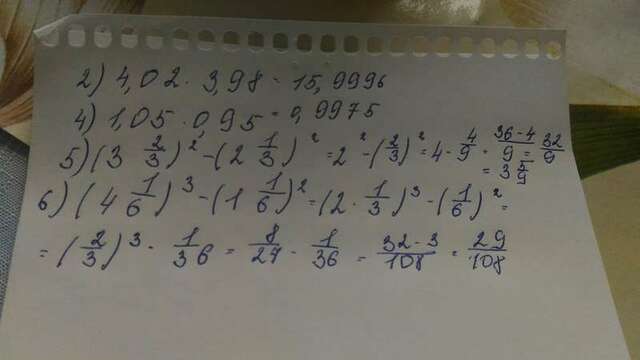 2) 4,02 · 3,98 = 15,9996
4) 1,05 · 0,95 = 0,9975
5) (3 2/3)² - (2 1/3)² = 2² - (2/3)² = 4 - 4/9 = 36-4/9 = 32/9 = 3 5/9
6) (4 1/6)³ - (1 1/6)² = (2 · 1/3)³ - (1/6)² =
= (2/3)³ - 1/36 = 8/27 - 1/36 = 32-3/108 = 29/108